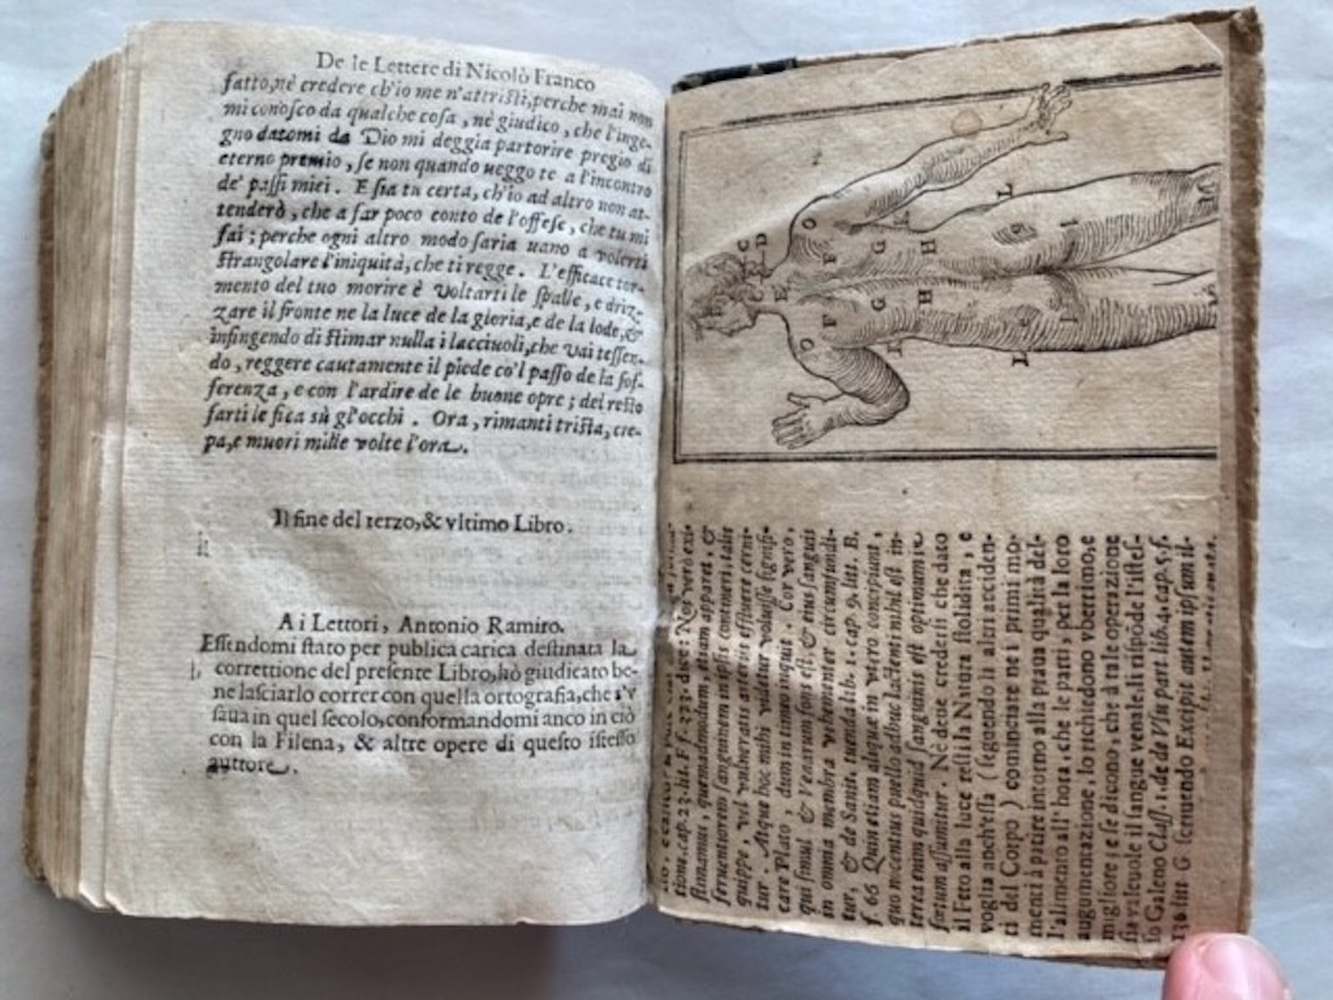 De le Lettere di Nicolò Franco
fatto, nè credere ch'io me n'attristi, perche mai non
mi conosco da qualche cosa, nè giudico, che l'inge-
gno datomi da Dio mi deggia partorire pregio di
eterno premio, se non quando ueggo te a l'incontro
de' passi miei. E sia tu certa, ch'io ad altro non at-
tenderò, che a far poco conto de l'offese, che tu mi
fai; perche ogni altro modo saria uano a volerti
strangolare l'iniquità, che ti regge. L'efficace tor-
mento del tuo morire è voltarti le spalle, e driz-
zare il fronte ne la luce de la gloria, e de la lode, &
infingendo di stimar nulla i lacciuoli, che vai tessen-
do, reggere cautamente il piede co'l passo de la sof-
ferenza, e con l'ardire de le buone opre; del resto
farti le fica sù gl'occhi. Ora, rimanti trista, cre-
pa, e muori mille volte l'ora.
Il fine del terzo, & vltimo Libro.
A i Lettori, Antonio Ramiro.
Essendomi stato per publica carica destinata la
correttione del presente Libro, hò giudicato be-
ne lasciarlo correr con quella ortografia, che s'v
saua in quel secolo, conformandomi anco in ciò
con la Filena, & altre opere di questo istesso
auttore.
C
D
E
O
F
G
H
K
L
I
O
F
G
H
L
I
tione. cap. 23. lit. F f. 223. dicet: Nos verò exi-
stimamus, quemadmodum, etiam apparet, &
feruentiorem sanguinem in ipsis contineri, tam
quippe, vel vulneratis arterijs effluere cerni-
tur. Atque hoc mihi videtur voluisse signifi-
care Plato, dum in timeo inquit. Cor vero,
qui simul & Venarum fons est, & eius sanguis
in omnia membra vehementer circumfundi-
tur, & de Sanit. tuenda lib. 1. cap. 9. litt. B.
f. 66 Quin etiam aliquæ in vtero concipiunt,
quo nocentius puello adhuc lactenti nihil est in-
terea enim quidquid sanguinis est optimum in
fœtum assumitur. Nè deue crederli che dato
il Feto alla luce resti la Natura stolidita, e
voglia anch'essa (seguendo li altri acciden-
ti del Corpo) cominciare ne i primi mo-
menti à patire intorno alla praua qualità del-
l'alimento all'hora, che le parti, per la loro
augumentazione, lo richiedono vberrimo, e
migliore; e se dicono, che à tale operazione
sia valeuole il sangue venale, li rispōde l'istes-
so Galeno Class. 1. de de Vsu part lib. 4. cap. 5. f.
136 litt G scriuendo Excipit autem ipsum il-